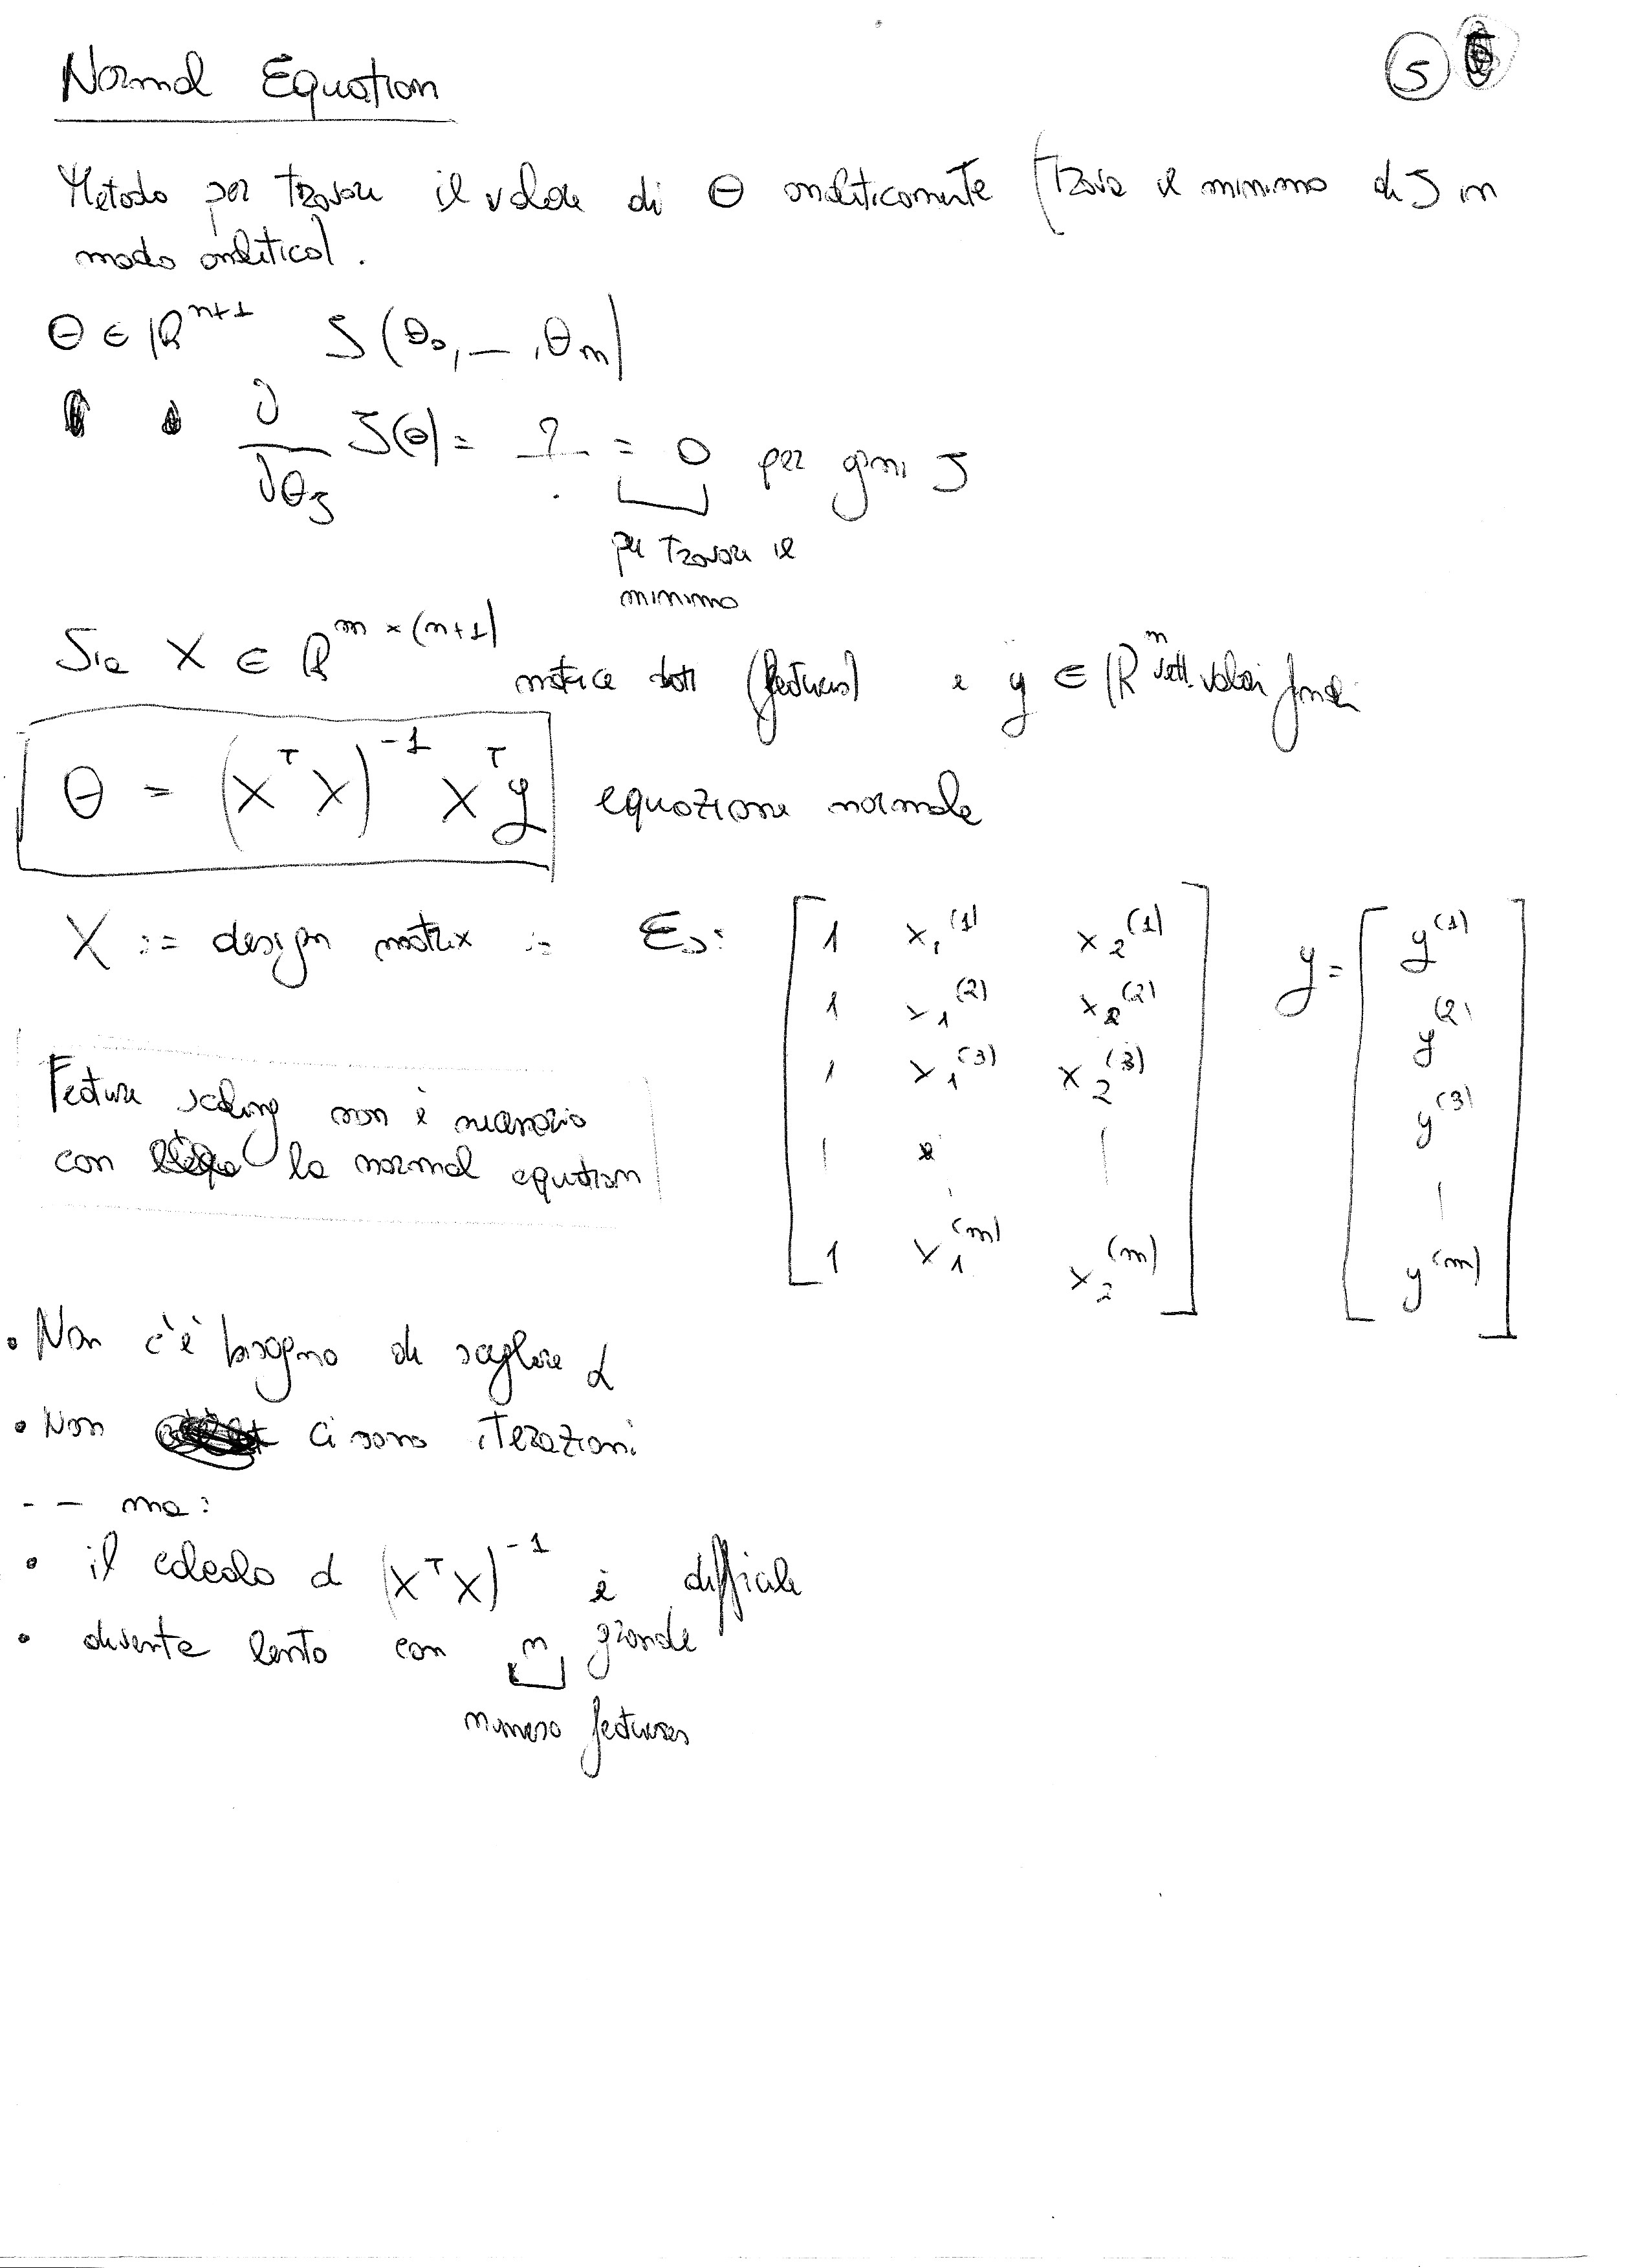 Normal Equation
5
Metodo per trovare il valore di θ analiticamente (trova il minimo di J in
modo analitico).
θ ∈ ℝ^{n+1} J(θ_0, _ , θ_n)
∂/∂θ_J J(θ) = ? = 0 per ogni J
per trovare il
minimo
Sia X ∈ ℝ^{m × (n+1)} matrice dati (features) e y ∈ ℝ^m vett. valori finali
θ = (X^T X)^{-1} X^T y equazione normale
X := design matrix := Es:
1 x_1^{(1)} x_2^{(1)}
1 x_1^{(2)} x_2^{(2)}
1 x_1^{(3)} x_2^{(3)}
1 x_1^{(m)} x_2^{(m)}
y =
y^{(1)}
y^{(2)}
y^{(3)}
y^{(m)}
Feature scaling non è necessario
con la normal equation
• Non c'è bisogno di scegliere α
• Non ci sono iterazioni
-- ma:
• il calcolo d (X^T X)^{-1} è difficile
• diventa lento con n grande
numero features